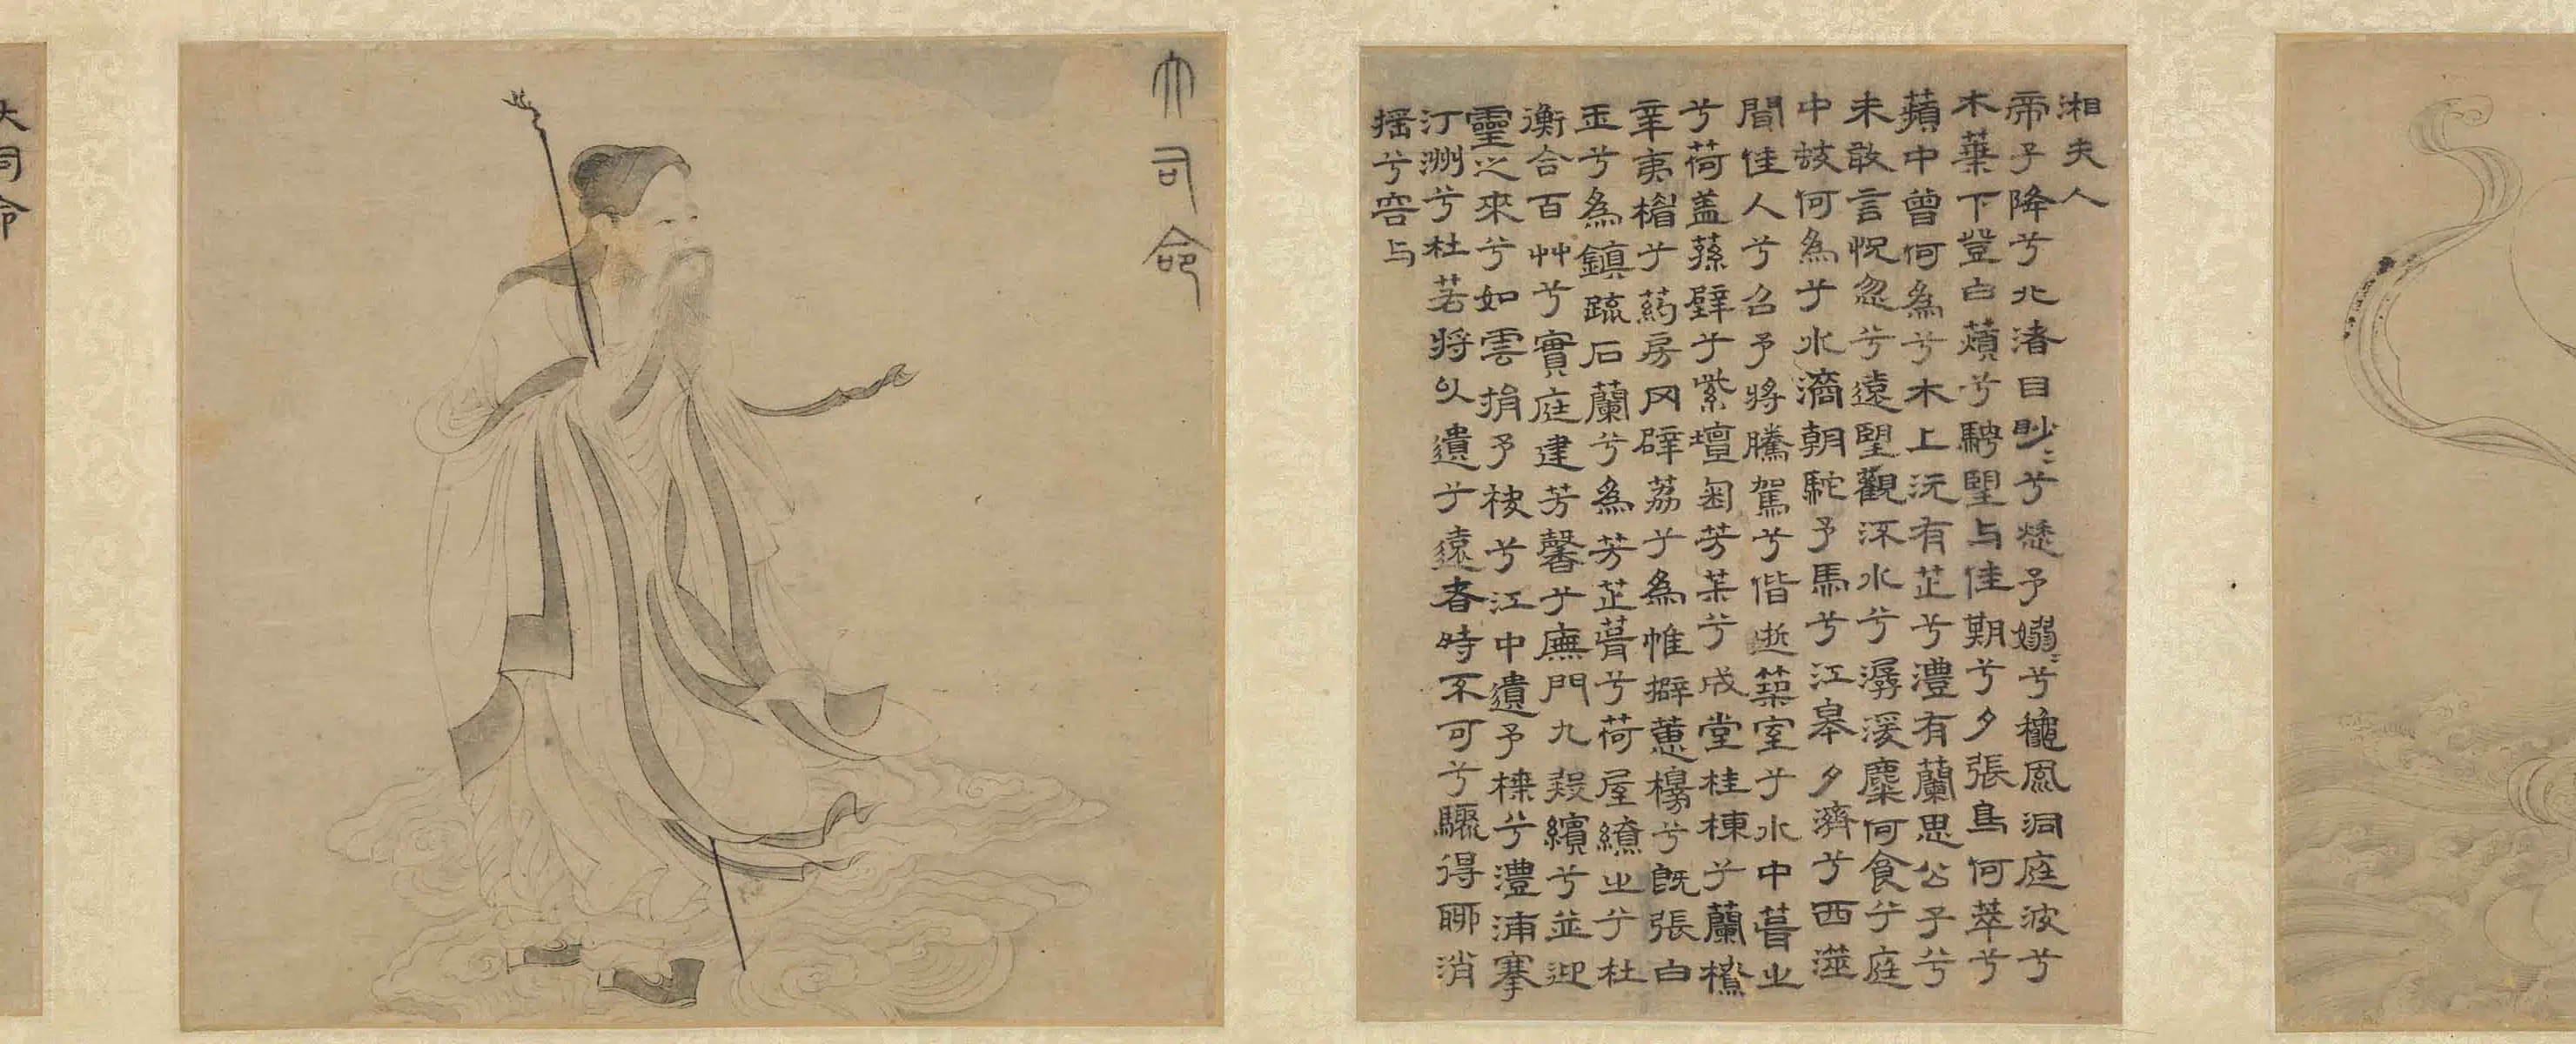 湘夫人
帝子降兮北渚目眇〻兮愁予嫋〻兮龝風洞庭波兮
木葉下登白薠兮騁望与佳期兮夕張鳥何萃兮
蘋中曾何為兮木上沅有芷兮澧有蘭思公子兮
未敢言怳忽兮遠望觀水兮潺湲麋何食兮庭
中蛟何為兮水裔朝駝予馬兮江皋夕濟兮西澨
聞佳人兮召予將騰駕兮偕逝築室兮水中葺之
兮荷盖蓀壁兮紫壇匊芳兮成堂桂棟兮蘭橑
辛夷楣兮葯房罔薜荔兮為帷擗蕙櫋兮既張白
玉兮為鎮疏石蘭兮為芳芷葺兮荷屋繚之兮杜
衡合百艸兮實庭建芳馨兮廡門九疑繽兮並迎
靈之來兮如雲捐予袂兮江中遺予褋兮澧浦搴
汀洲兮杜若將以遺兮遠者時不可兮驟得聊消
搖兮容与
大司命
大司命